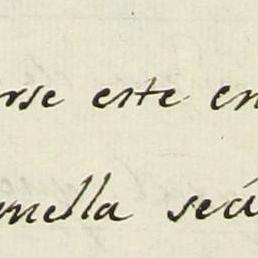 rse este en
nella seá